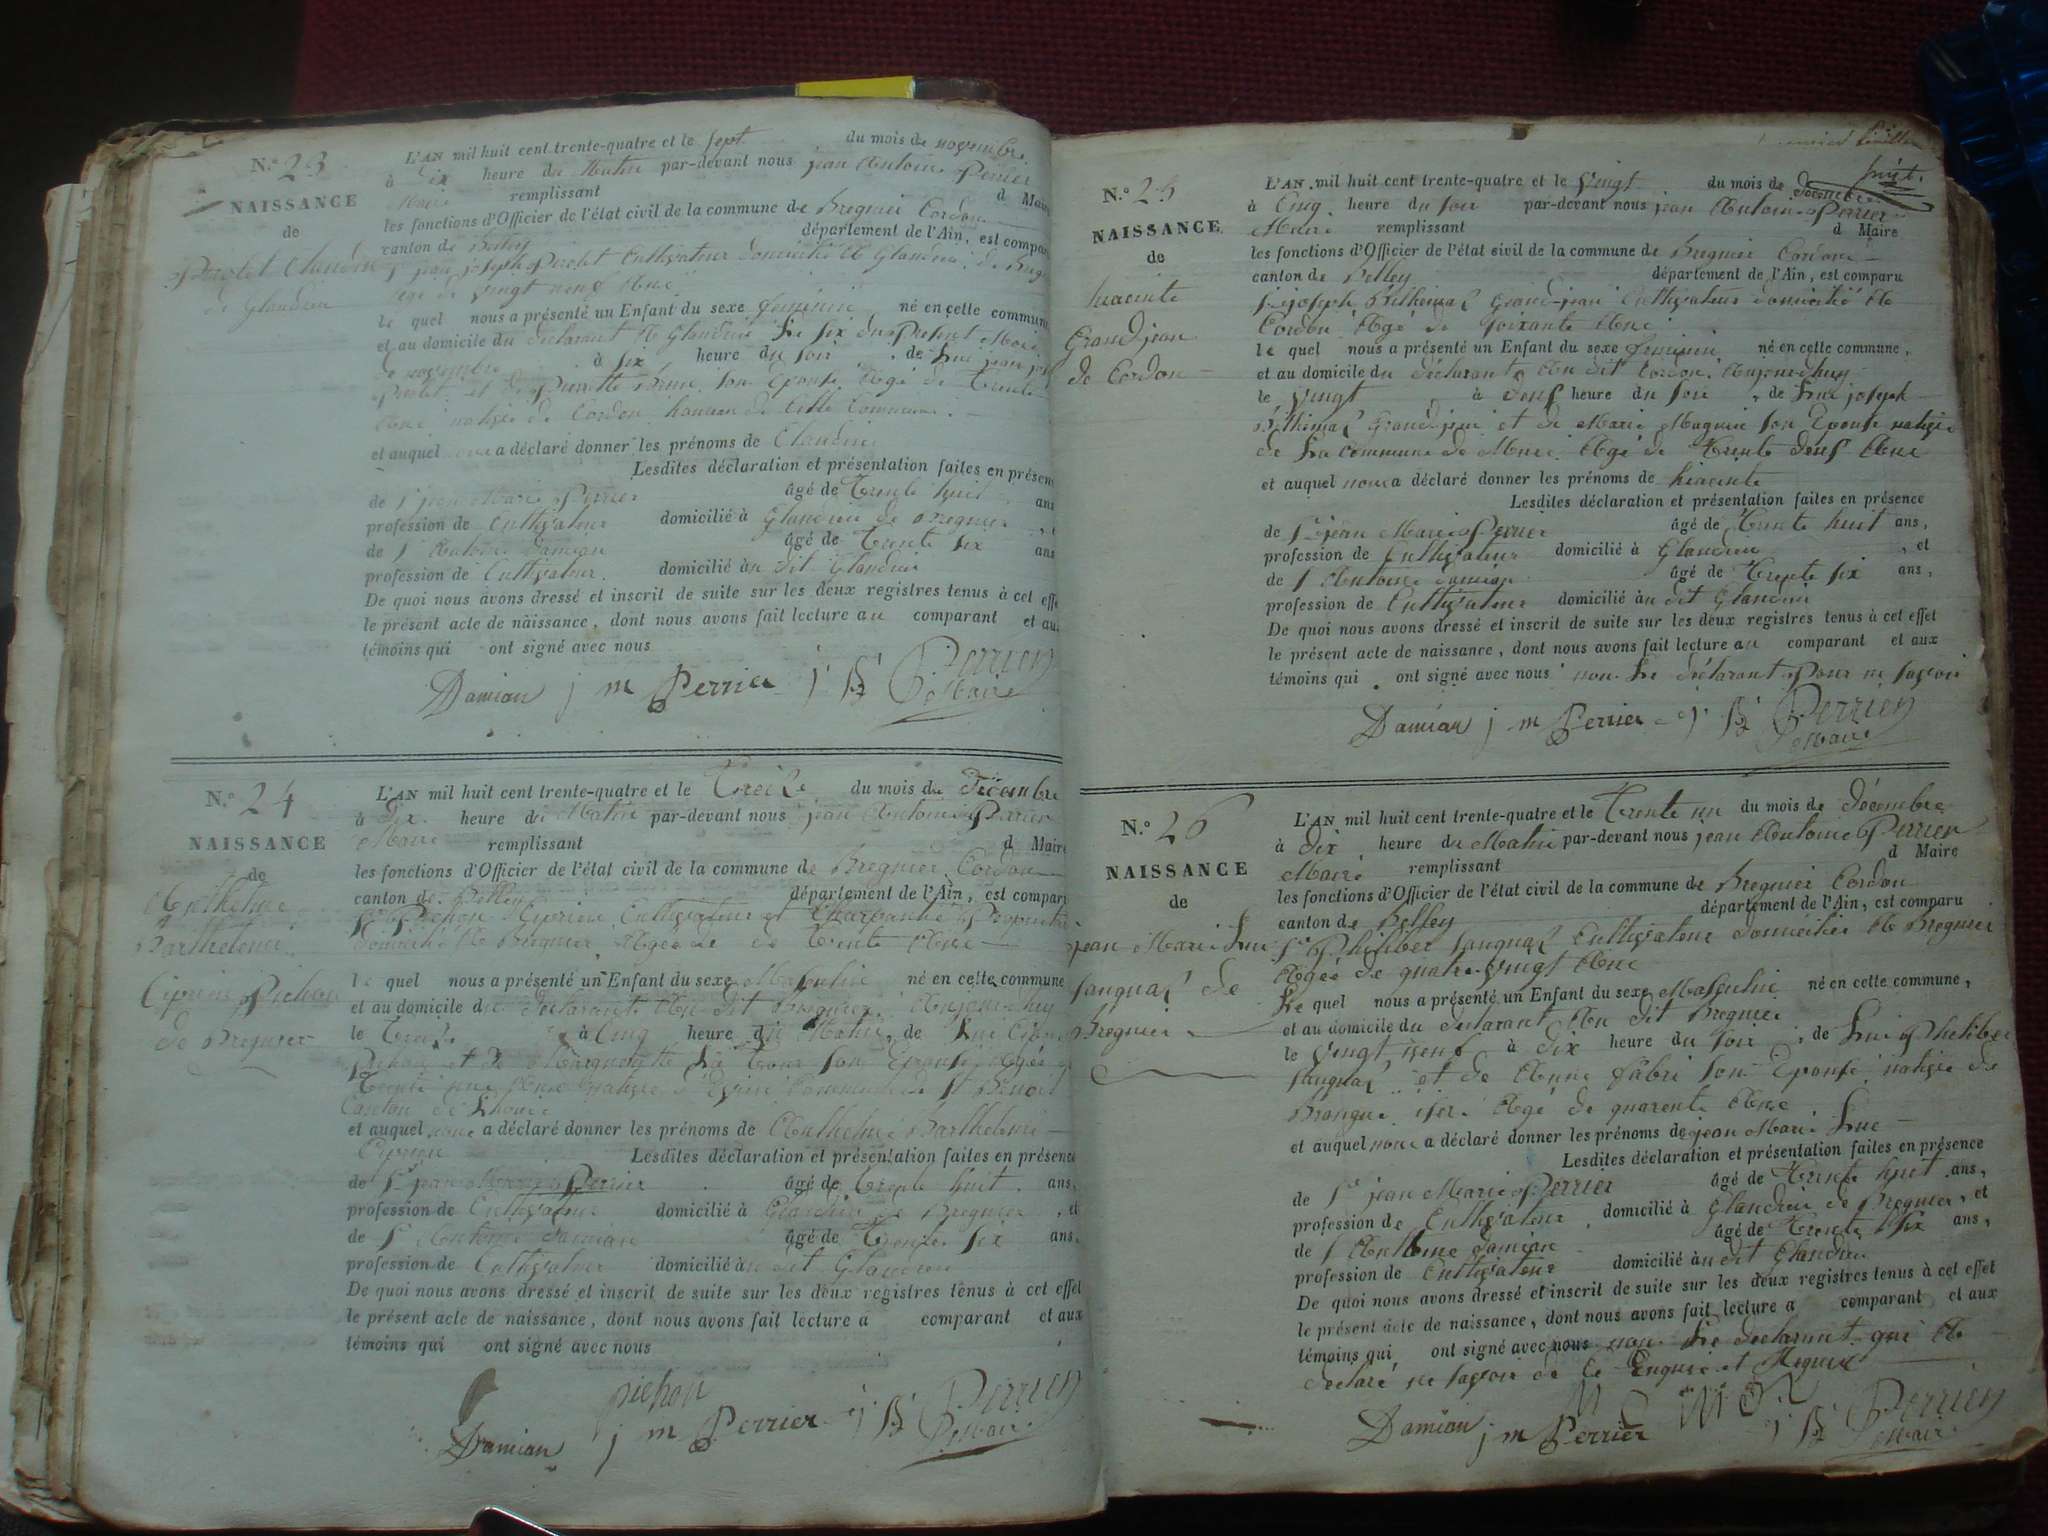 N.º 23
NAISSANCE
de
Perolet Claudine
de Glandieu
L'AN mil huit cent trente-quatre et le sept du mois de novembre
à Dix heure du Matin par-devant nous jean Antoine Perrier
Maire remplissant d Maire
les fonctions d'Officier de l'état civil de la commune de Bregnier Cordon
canton de Belley département de l'Ain, est compar
jean joseph Cultivateur domicilié A Glandieu de
Agé de vingt neuf Ans
le quel nous a présenté un Enfant du sexe feminin né en cette commune
et au domicile du déclarant A Glandieu Le six du Présent Mois
de novembre à six heure du soir de Lui jean
et de Pierrette son Epouse Agé de Trente
Ans native de Cordon hameau de Cette Commune
et auquel a déclaré donner les prénoms de Claudine
Lesdites déclaration et présentation faites en présen
de Sr jean Marie Perrier âgé de Trente huit ans
profession de Cultivateur domicilié à Glandieu de Bregnier
de Sr Antoine Damian âgé de Trente six ans
profession de Cultivateur domicilié àu dit Glandieu
De quoi nous avons dressé et inscrit de suite sur les deux registres tenus à cet effe
le présent acte de naissance, dont nous avons fait lecture au comparant et au
témoins qui ont signé avec nous
Damian j m Perrier Perrier
Maire
N.º 24
NAISSANCE
de
Anthelme
Barthelemi
Ciprien Pichon
de Bregnier
L'AN mil huit cent trente-quatre et le Treize du mois de Décembre
à Dix heure du Matin par-devant nous jean Antoine Perrier
Maire remplissant d Maire
les fonctions d'Officier de l'état civil de la commune de Bregnier Cordon
canton de Belley département de l'Ain, est compar
Sr Pichon Ciprien Cultivateur et
domicilié A Bregnier Agée de Trente Ans
le quel nous a présenté un Enfant du sexe Masculin né en cette commune
et au domicile du déclarant Au dit Bregnier Aujourdhuy
le Treize à Cinq heure du Matin de Lui
Pichon et de son Epouse Agée
Trente Ans native Commune de St Benoit
Canton de Lhuis
et auquel nous a déclaré donner les prénoms de Anthelme Barthelemi
Ciprien Lesdites déclaration et présentation faites en présence
de Sr jean Marie Perrier âgé de Trente huit ans,
profession de Cultivateur domicilié à Glandieu de Bregnier, et
de Sr Antoine Damian âgé de Trente six ans.
profession de Cultivateur domicilié àu dit Glandieu
De quoi nous avons dressé et inscrit de suite sur les deux registres tenus à cet effet
le présent acte de naissance, dont nous avons fait lecture a comparant et aux
témoins qui ont signé avec nous
pichon
Damian j m Perrier Perrier
Maire
N.º 25
NAISSANCE
de
hiacinte
Grandjean
de Cordon
L'AN mil huit cent trente-quatre et le vingt du mois de Décembre
à Cinq heure du soir par-devant nous jean Antoine Perrier
Maire remplissant d Maire
les fonctions d'Officier de l'état civil de la commune de Bregnier Cordon
canton de Belley département de l'Ain, est comparu
Sr joseph Grand-jean Cultivateur domicilié A
Cordon Agé de soixante Ans
le quel nous a présenté un Enfant du sexe feminin né en cette commune,
et au domicile du déclarant Au dit Cordon Aujourdhuy
le vingt à deuf heure du soir de Lui joseph
Grandjean et de Marie Magnin son Epouse native
de La commune de Agé de Trente deuf Ans
et auquel nous a déclaré donner les prénoms de hiacinte
Lesdites déclaration et présentation faites en présence
de Sr jean Marie Perrier âgé de Trente huit ans,
profession de Cultivateur domicilié à Glandieu, et
de Sr Antoine Damian âgé de Trente six ans,
profession de Cultivateur domicilié àu dit Glandieu
De quoi nous avons dressé et inscrit de suite sur les deux registres tenus à cet effet
le présent acte de naissance, dont nous avons fait lecture au comparant et aux
témoins qui ont signé avec nous non Le déclarant Pour ne savoir
Damian j m Perrier Perrier
Maire
N.º 26
NAISSANCE
de
jean Marie Luc
de
Bregnier
L'AN mil huit cent trente-quatre et le Trente un du mois de décembre
à Dix heure du Matin par-devant nous jean Antoine Perrier
Maire remplissant d Maire
les fonctions d'Officier de l'état civil de la commune de Bregnier Cordon
canton de Belley département de l'Ain, est comparu
Sr Philiber Cultivateur domicilié A Bregnier
Agée de quatre-vingt Ans
Le quel nous a présenté un Enfant du sexe Masculin né en cette commune,
et au domicile du déclarant Au dit Bregnier
le vingt neuf à dix heure du soir, de Lui Philiber
et de Anne fabri son Epouse native de
Brangue isere Agé de quarente Ans
et auquel nous a déclaré donner les prénoms de jean Marie Luc
Lesdites déclaration et présentation faites en présence
de Sr jean Marie Perrier âgé de Trente huit ans,
profession de Cultivateur domicilié à Glandieu de Bregnier, et
de Sr Antoine Damian âgé de Trente six ans,
profession de Cultivateur domicilié àu dit Glandieu
De quoi nous avons dressé et inscrit de suite sur les deux registres tenus à cet effet
le présent acte de naissance, dont nous avons fait lecture a comparant et aux
témoins qui ont signé avec nous non Le déclarant qui A
déclaré ne savoir de ce Enquis et Requis
Damian j m Perrier Perrier
Maire